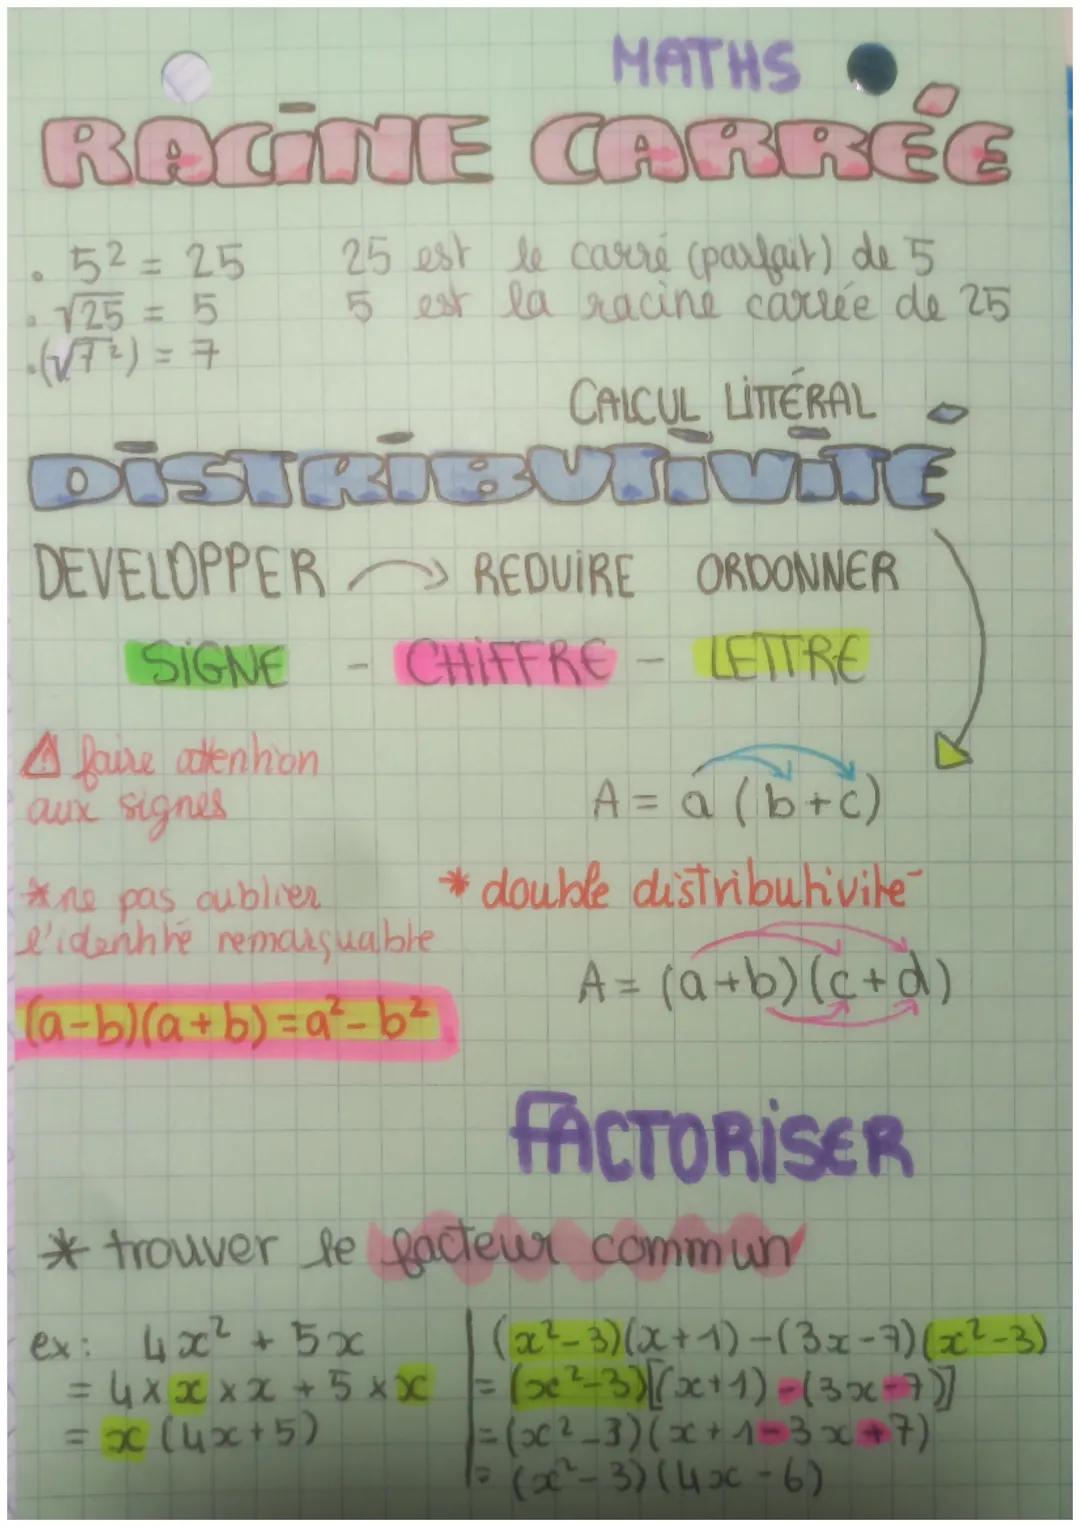 MATHS
RACINE CARRÉE
. 5² = 25 25 est le carré (parfait) de 5
. √25 = 5 5 est la racine carrée de 25
.(√7²) = 7
CALCUL LITTÉRAL
DISTRIBUTIVITÉ
DEVELOPPER → REDUIRE ORDONNER
SIGNE - CHIFFRE - LETTRE
⚠ faire attention
aux signes
A = a (b+c)
*ne pas oublier
l'identité remarquable
(a-b)(a+b) = a² - b²
* double distributivité
A = (a+b)(c+d)
FACTORISER
* trouver le facteur commun
ex: 4x² + 5x
= 4 × x × x + 5 × x
= x (4x+5)
(x²-3)(x+1)-(3x-7)(x²-3)
= (x²-3)[(x+1)-(3x-7)]
= (x²-3)(x+1-3x+7)
= (x²-3)(4x-6)